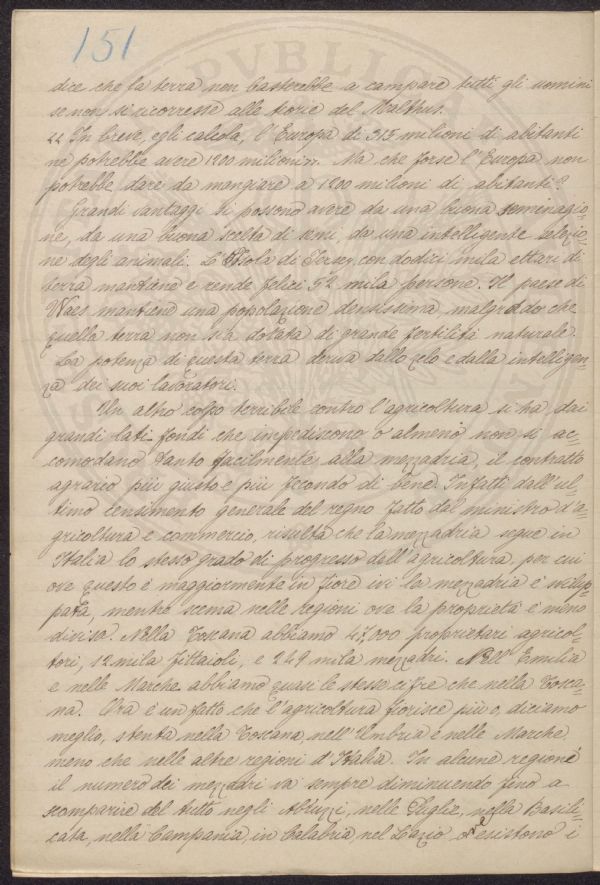 151
dice che la terra non basterebbe a campare tutti gli uomini
se non si ricorresse alle teorie del Malthus.
In breve, egli calcola, l'Europa di 315 milioni di abitanti
ne potrebbe avere 1200 milioni". Ma che forse l'Europa non
potrebbe dare da mangiare a 1200 milioni di abitanti?
Grandi vantaggi si possono avere da una buona seminagio-
ne, da una buona scelta di semi, da una intelligente selezio-
ne degli animali. L'Isola di Jersey, con dodici mila ettari di
terra mantiene e rende felici 52 mila persone. Il paese di
Waes mantiene una popolazione densissima, malgrado che
quella terra non sia dotata di grande fertilità naturale.
La potenza di questa terra deriva dallo zelo e dalla intelligen-
za dei suoi lavoratori.
Un altro colpo terribile contro l'agricoltura si ha dai
grandi lati-fondi che impediscono o almeno non si ac-
comodano tanto facilmente alla mezzadria, il contratto
agrario più giusto e più fecondo di bene. Infatti dall'ul-
timo censimento generale del regno fatto dal ministro d'a-
gricoltura e commercio, risulta che la mezzadria segue in
Italia lo stesso grado di progresso dell'agricoltura, per cui
ove questo è maggiormente in fiore ivi la mezzadria è svilup-
pata, mentre scema nelle regioni ove la proprietà è meno
divisa. Nella Toscana abbiamo 47,000 proprietari agricol-
tori, 12 mila fittaioli, e 249 mila mezzadri. Nell'Emilia
e nelle Marche abbiamo quasi le stesse cifre che nella Tosca-
na. Ora è un fatto che l'agricoltura fiorisce più o, diciamo
meglio, stenta nella Toscana, nell'Umbria e nelle Marche
meno che nelle altre regioni d'Italia. In alcune regione
il numero dei mezzadri va sempre diminuendo fino a
scomparire del tutto negli Abruzzi, nelle Puglie, nella Basili-
cata, nella Campania, in Calabria, nel Lazio esistono i